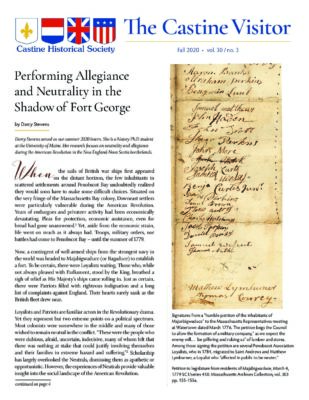 The Castine Visitor
Castine Historical Society
Fall 2020 • vol. 30 / no. 3
Performing Allegiance
and Neutrality in the
Shadow of Fort George
by Darcy Stevens
Darcy Stevens served as our summer 2020 intern. She is a history Ph.D. student
at the University of Maine. Her research focuses on neutrality and allegiance
during the American Revolution in the New England-Nova Scotia borderlands.
When the sails of British war ships first appeared
on the distant horizon, the few inhabitants in
scattered settlements around Penobscot Bay undoubtedly realized
they would soon have to make some difficult choices. Situated on
the very fringe of the Massachusetts Bay colony, Downeast settlers
were particularly vulnerable during the American Revolution.
Years of embargoes and privateer activity had been economically
devastating. Pleas for protection, economic assistance, even for
bread had gone unanswered. Yet, aside from the economic strain,
life went on much as it always had. Troops, military orders, nor
battles had come to Penobscot Bay – until the summer of 1779.
Now, a contingent of well-armed ships from the strongest navy in
the world was headed to Majabigwaduce (or Bagaduce) to establish
a fort. To be certain, there were Loyalists waiting. Those who, while
not always pleased with Parliament, stood by the King, breathed a
sigh of relief as His Majesty's ships came sailing in. Just as certain,
there were Patriots filled with righteous indignation and a long
list of complaints against England. Their hearts surely sank as the
British fleet drew near.
Loyalists and Patriots are familiar actors in the Revolutionary drama.
Yet they represent but two extreme points on a political spectrum.
Most colonists were somewhere in the middle and many of those
wished to remain neutral in the conflict. "These were the people who
were dubious, afraid, uncertain, indecisive, many of whom felt that
there was nothing at stake that could justify involving themselves
and their families in extreme hazard and suffering." Scholarship
has largely overlooked the Neutrals, dismissing them as apathetic or
opportunistic. However, the experiences of Neutrals provide valuable
insight into the social landscape of the American Revolution.
continued on page 4
Samuel Matthews
John Wesson
John Scott
Matthew Lymburner
Thomas
Signatures from a "humble petition of the inhabitants of
Majabigwaduce" to the Massachusetts Representatives meeting
at Watertown dated March 1776. The petition begs the Council
to allow the formation of a military company "as we expect the
enemy will… be pilfering and robing us" of lumber and stores.
Among those signing the petition are several Penobscot Association
Loyalists, who in 1784, migrated to Saint Andrews and Matthew
Lymburner, a Loyalist who "affected in public to be neuter."
Petition to legislature from residents of Majabigwaduce, March 4,
1779 SC1/series 45X. Massachusetts Archives Collection, vol. 183
pp. 155-155a.